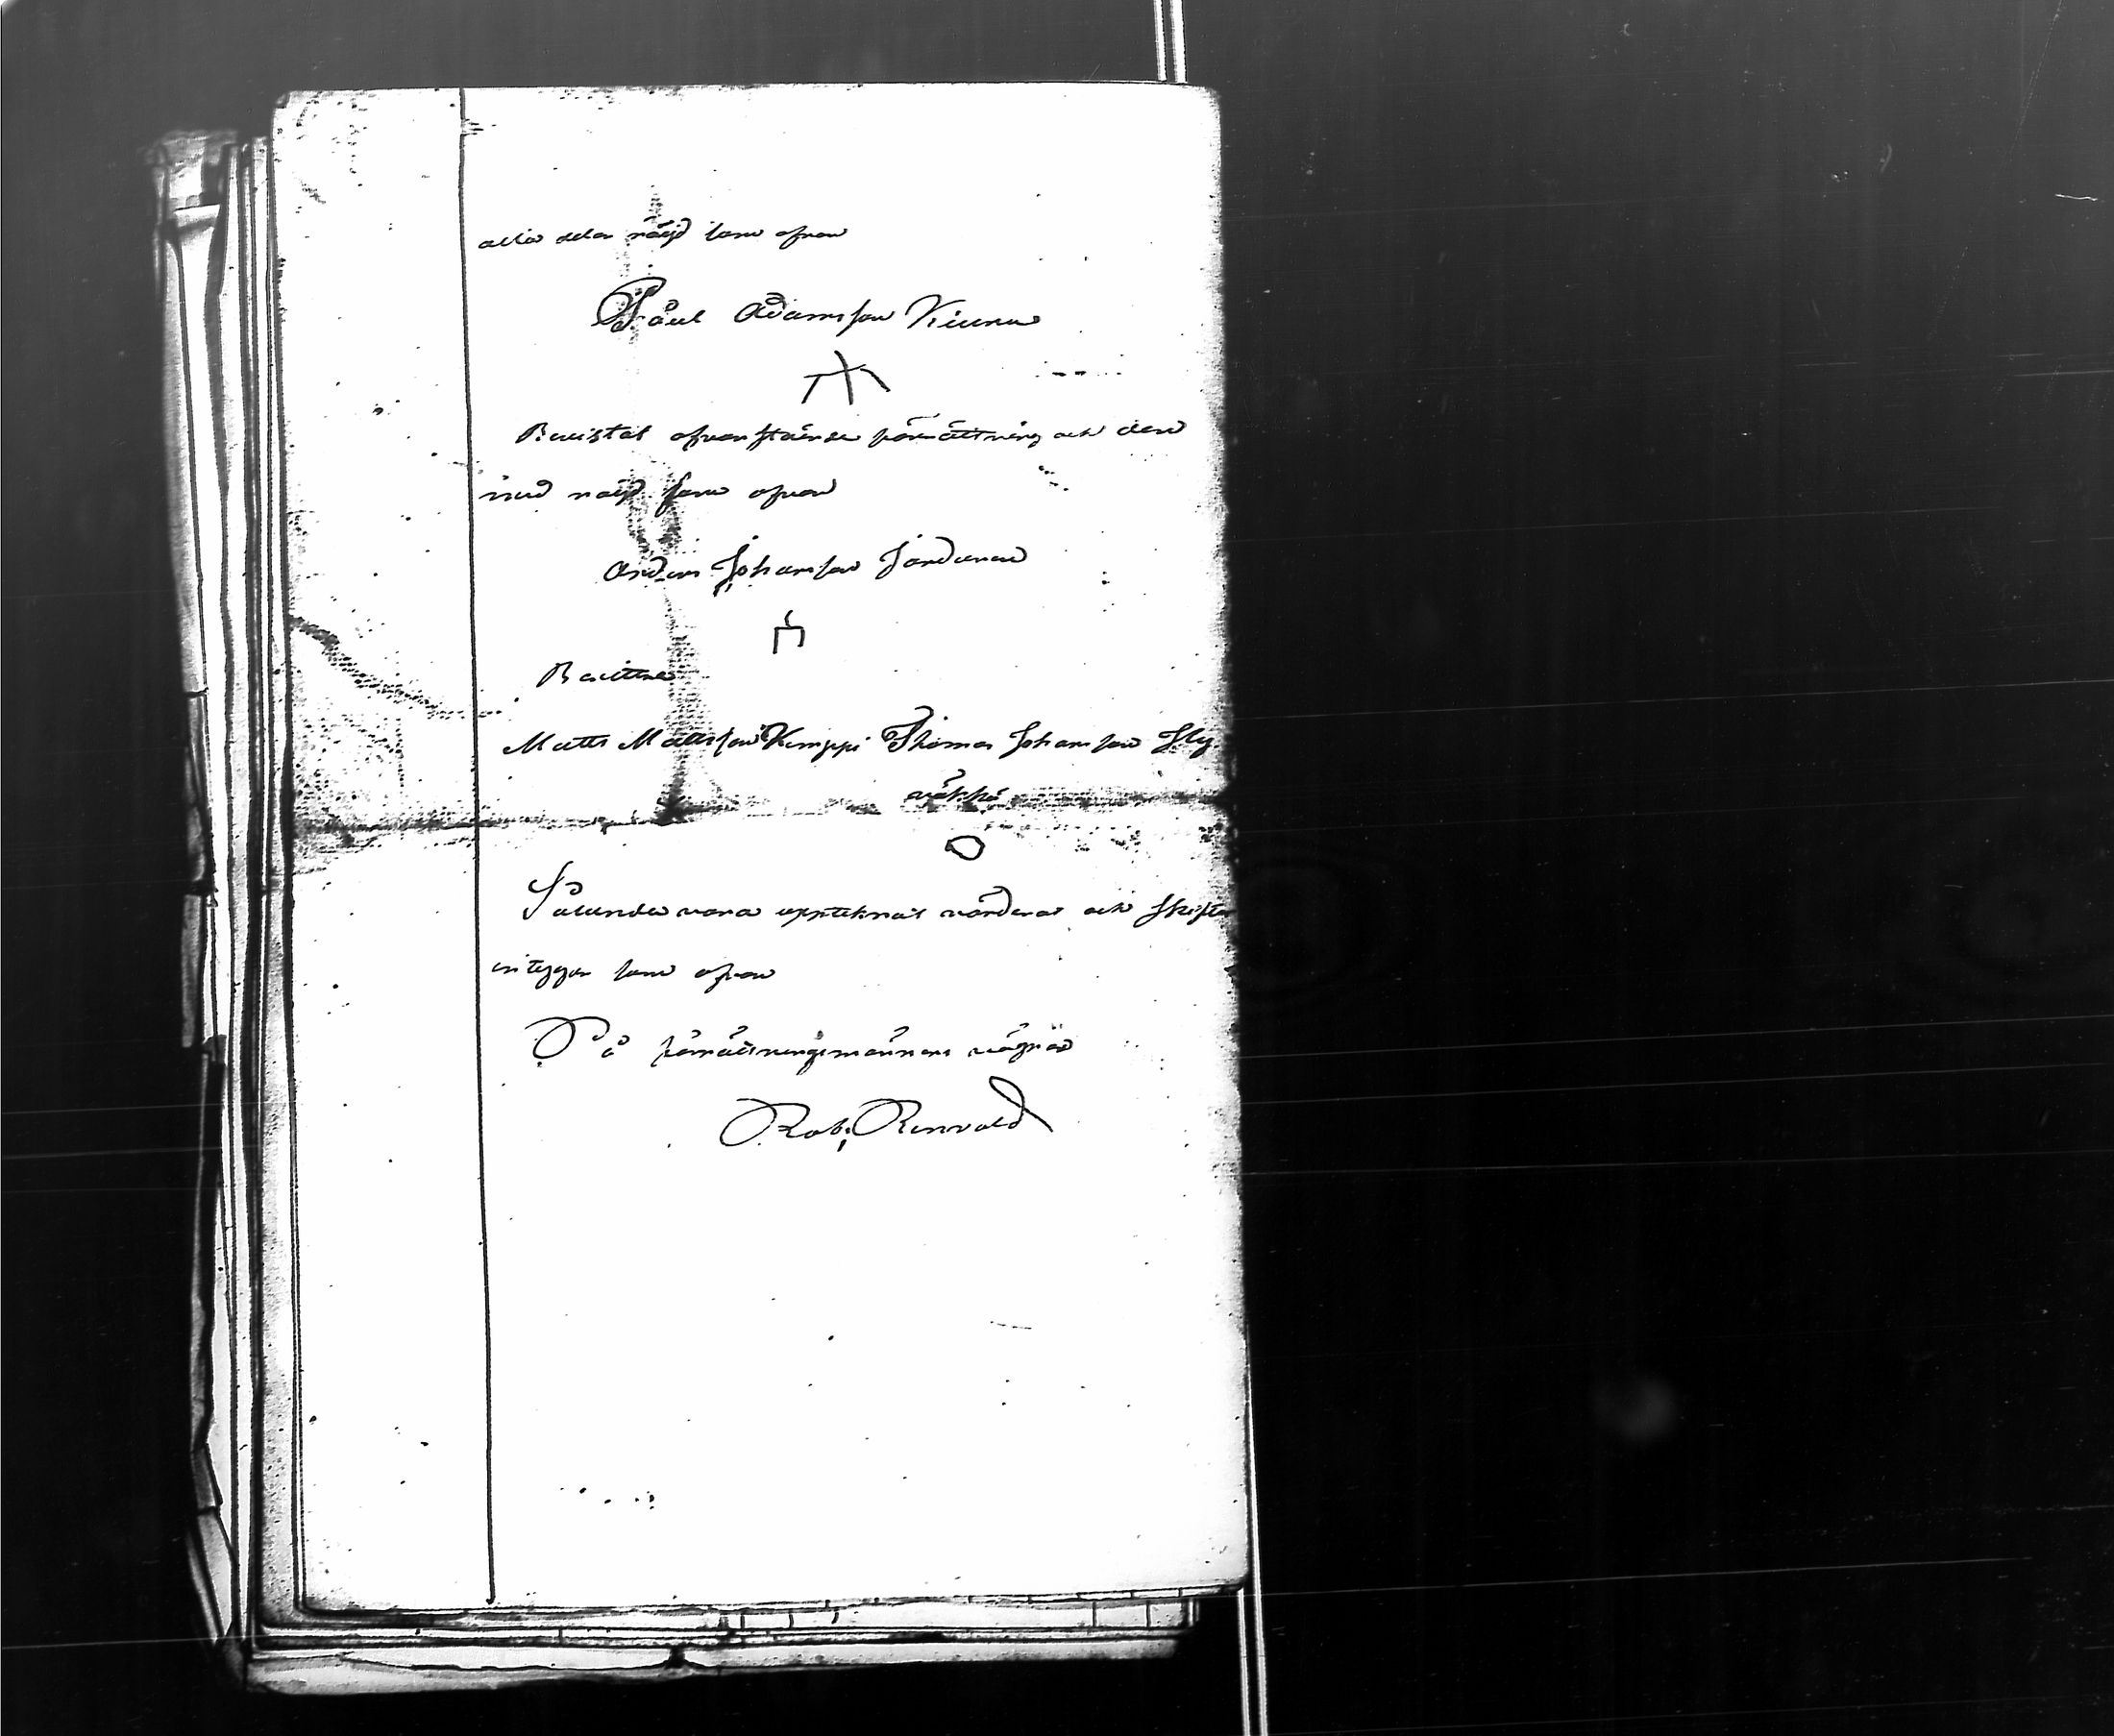 alla delar nöijd som ofvan
Påul Adamsson Kiuru
Bevistat ofvanstående förrättning och der
med nöijd som ofvan
Anders Johansson
Bevittna
Matts Mattsson Kemppi Thomas Johansson Hy
väkkä
Sålunda vara upteknat värderat och skifta
intygga som ofvan
På förrättningsmännens vägnar
Rob: Renvald